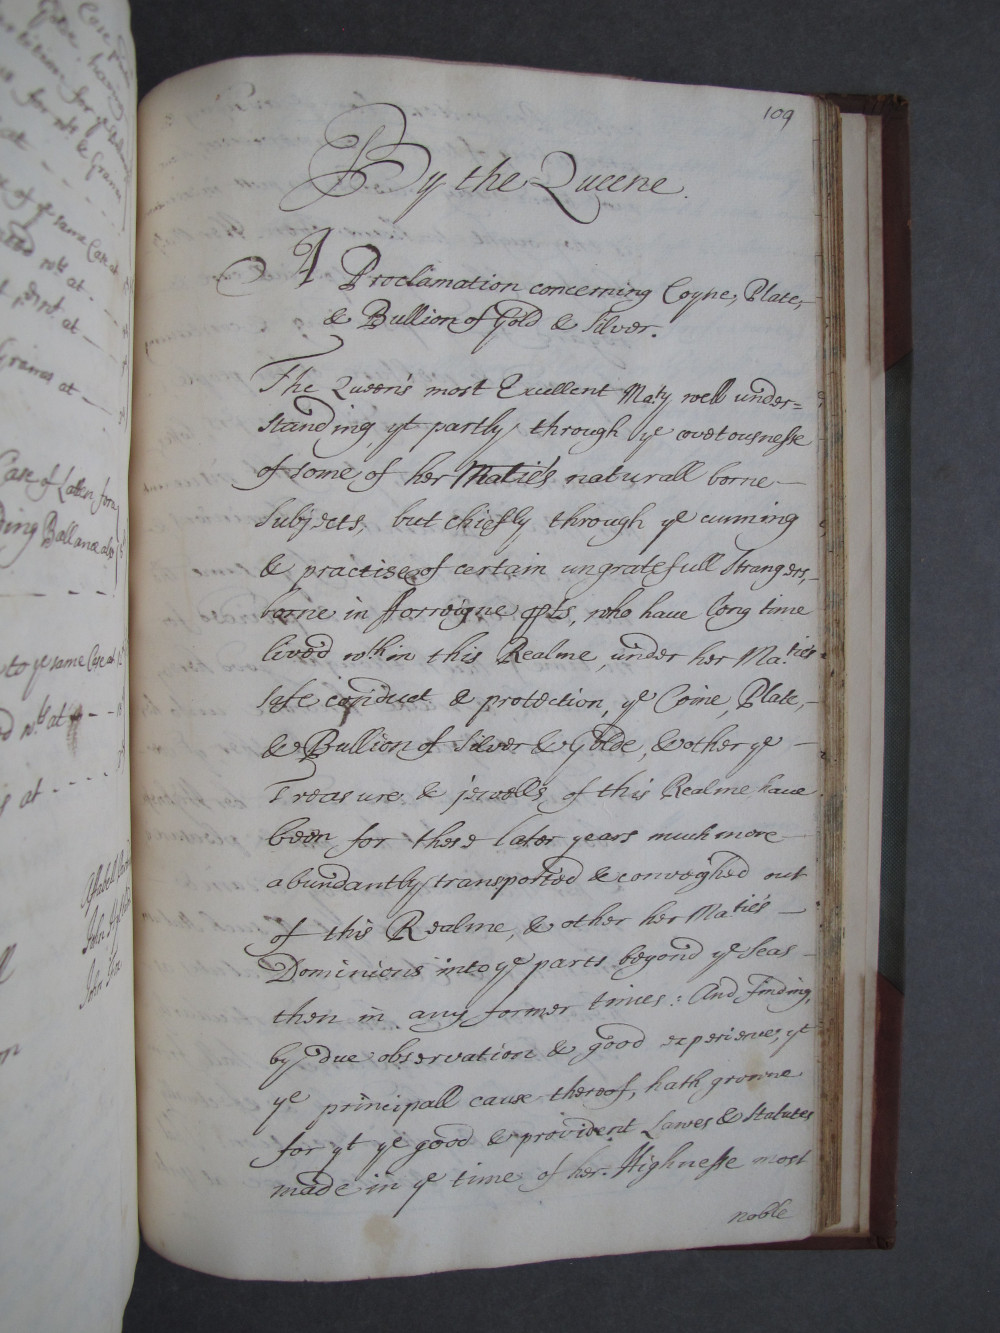 109
By the Queene.
A Proclamation concerning Coyne, Plate,
& Bullion of Gold & Silver.
The Queen's most Excellent Maty well under=
standing, yt partly through ye covetousnesse
of some of her Maties naturall borne
Subjects, but chiefly through ye cunning
& practise of certain ungratefull Strangers,
borne in fforreigne pts, who have long time
lived wthin this Realme, under her Maties
safe conduct & protection, ye Coine, Plate,
& Bullion of Silver & Golde, & other ye
Treasure & jewells, of this Realme have
been for these later years much more
abundantly transported & conveighed out
of this Realme, & other her Maties
Dominions into ye parts beyond ye Seas
then in any former times: And finding,
by due observation & good experience, yt
ye principall cause thereof, hath growne
for yt ye good & provident Lawes & Statutes
made in ye time of her Highnesse most
noble
Case of Latten for a
ding Ballance als
to ye same Case at
d wt at
s at
Grains at
John
John